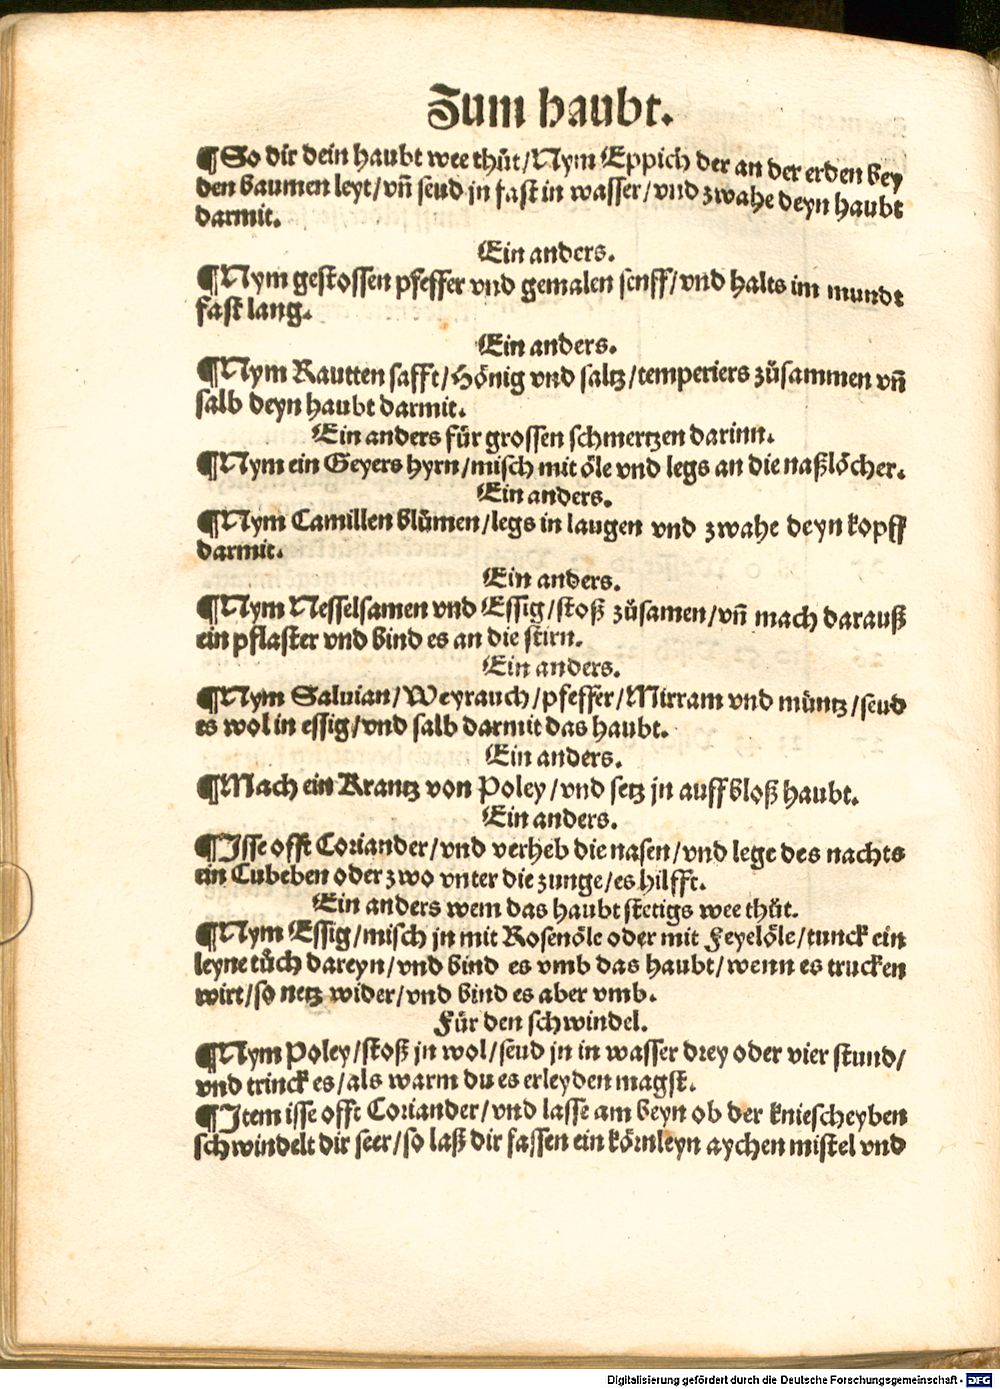 Zum haubt.
¶So dir dein haubt wee thůt/Nym Eppich der an der erden bey
den baumen leyt/vñ seud jn fast in wasser/vnd zwahe deyn haubt
darmit.
Ein anders.
¶Nym gestossen pfeffer vnd gemalen senff/vnd halts im mundt
fast lang.
Ein anders.
¶Nym Rautten safft/Hönig vnd saltz/temperiers zůsammen vñ
salb deyn haubt darmit.
Ein anders für grossen schmertzen darinn.
¶Nym ein Geyers hyrn/misch mit öle vnd legs an die naßlöcher.
Ein anders.
¶Nym Camillen blůmen/legs in laugen vnd zwahe deyn kopff
darmit.
Ein anders.
¶Nym Nesselsamen vnd Essig/stoß zůsamen/vñ mach darauß
ein pflaster vnd bind es an die stirn.
Ein anders.
¶Nym Saluian/Weyrauch/pfeffer/Mirram vnd müntz/seud
es wol in essig/vnd salb darmit das haubt.
Ein anders.
¶Mach ein Krantz von Poley/vnd setz jn auff bloß haubt.
Ein anders.
¶Isse offt Coriander/vnd verheb die nasen/vnd lege des nachts
ein Cubeben oder zwo vnter die zunge/es hilfft.
Ein anders wem das haubt stetigs wee thůt.
¶Nym Essig/misch jn mit Rosenöle oder mit Feyelöle/tunck ein
leyne tůch dareyn/vnd bind es vmb das haubt/wenn es trucken
wirt/so netz wider/vnd bind es aber vmb.
Für den schwindel.
¶Nym Poley/stoß jn wol/seud jn in wasser drey oder vier stund/
vnd trinck es/als warm du es erleyden magst.
¶Item isse offt Coriander/vnd lasse am beyn ob der kniescheyben
schwindelt dir seer/so laß dir fassen ein körnleyn aychen mistel vnd
Digitalisierung gefördert durch die Deutsche Forschungsgemeinschaft - DFG